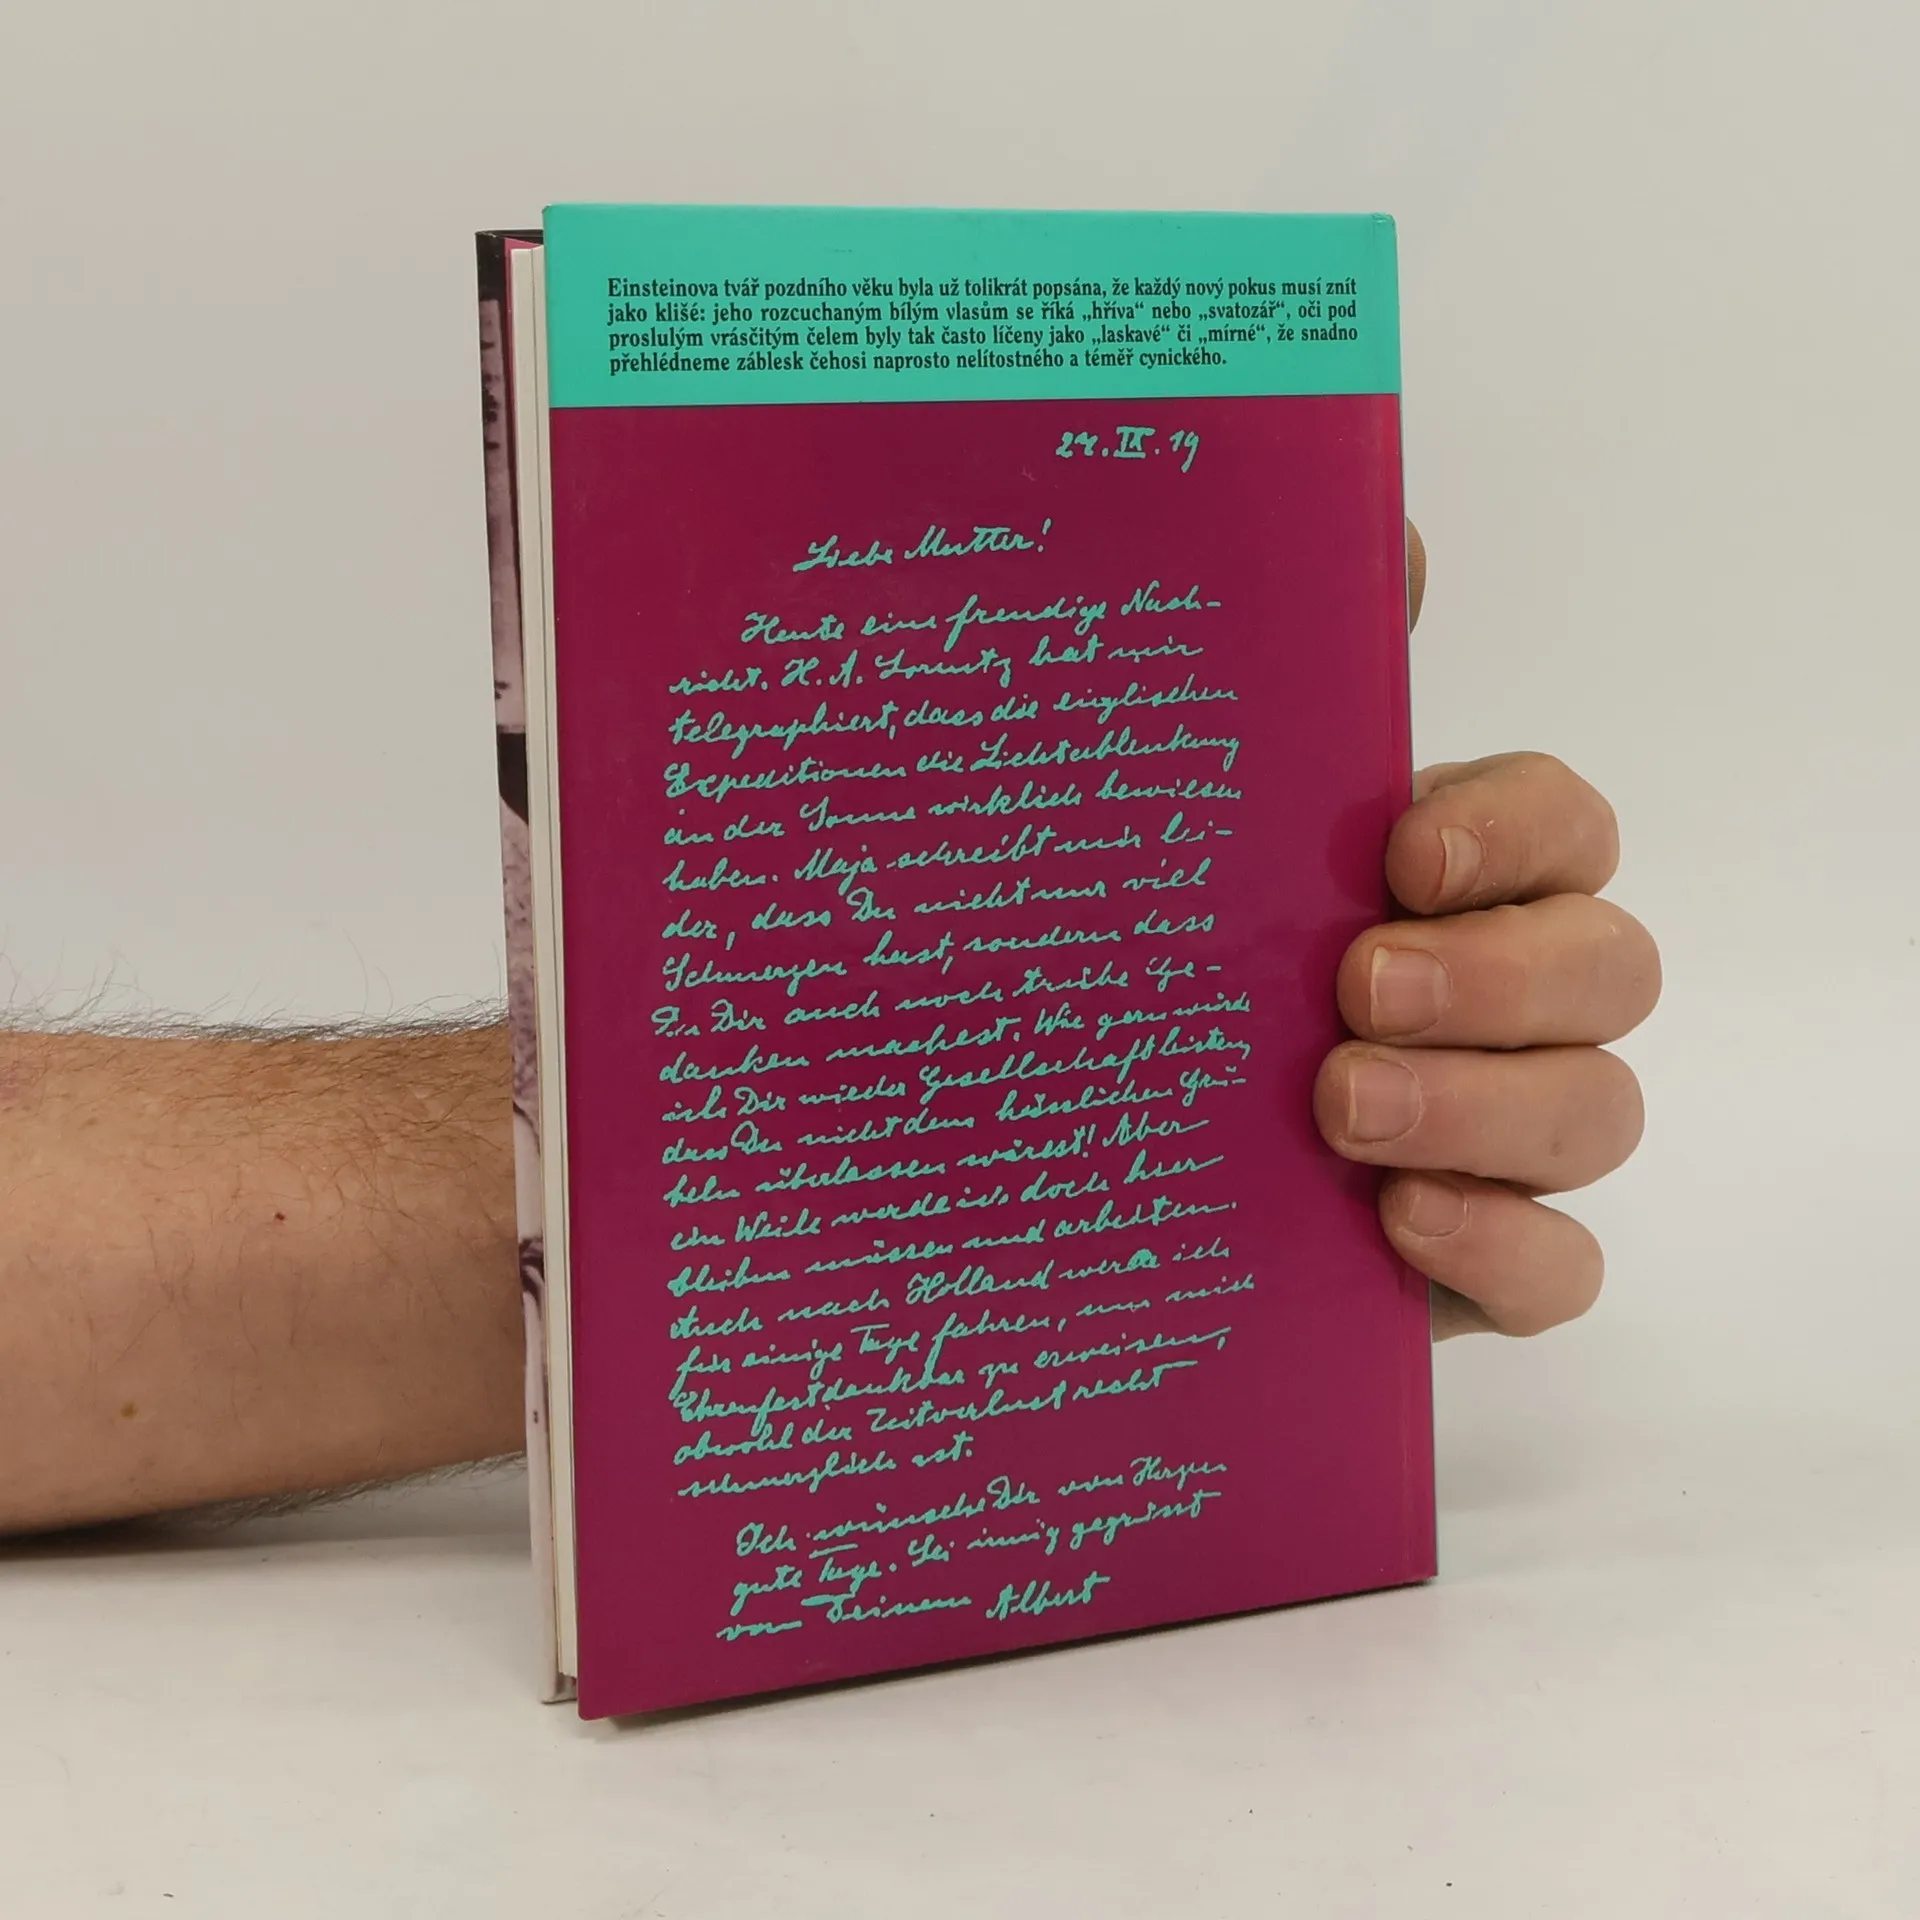 Einsteinova tvář pozdního věku byla už tolikrát popsána, že každý nový pokus musí znít
jako klišé: jeho rozcuchaným bílým vlasům se říká „hříva“ nebo „svatozář“, oči pod
proslulým vrásčitým čelem byly tak často líčeny jako „laskavé“ či „mírné“, že snadno
přehlédneme záblesk čehosi naprosto nelítostného a téměř cynického.
27. IX. 19
Liebe Mutter!
Heute eine freudige Nach-
richt. H. A. Lorentz hat mir
telegraphiert, dass die englischen
Expeditionen die Lichtablenkung
an der Sonne wirklich bewiesen
haben. Maja schreibt mir lei-
der, dass Du nicht nur viel
Schmerzen hast, sondern dass
Du Dir auch noch trübe Ge-
danken machest. Wie gern würde
ich Dir wieder Gesellschaft leisten,
dass Du nicht dem hässlichen Grü-
beln überlassen wärest! Aber
ein Weile werde ich doch hier
bleiben müssen und arbeiten.
Auch nach Holland werde ich
für einige Tage fahren, um mich
Ehrenfest dankbar zu erweisen,
obwohl der Zeitverlust recht
schmerzlich ist.
Ich wünsche Dir von Herzen
gute Tage. Sei innig gegrüsst
von Deinem Albert